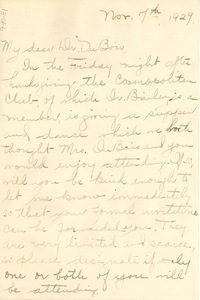 Nov. 7th, 1929.
My dear Dr. DuBois
On the Friday night after
thanksgiving the Cosmopolitan
Club, of which Dr. Bailey is a
member, is giving a supper
and dance which we both
thought Mrs. DuBois and you
would enjoy attending. If so,
will you be kind enough to
let me know immediately
so that your formal invitations
can be forwarded you. They
are very limited and scarce,
so please designate if only
one or both of you will
be attending.